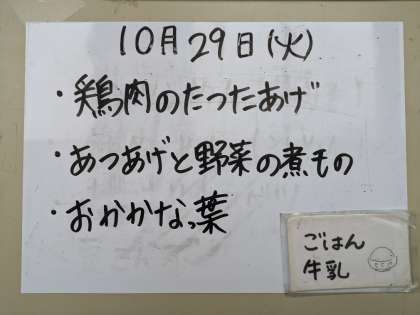 10月29日(火)
・鶏肉のたつたあげ
・あつあげと野菜の煮もの
・おかかなっ葉
ごはん
牛乳